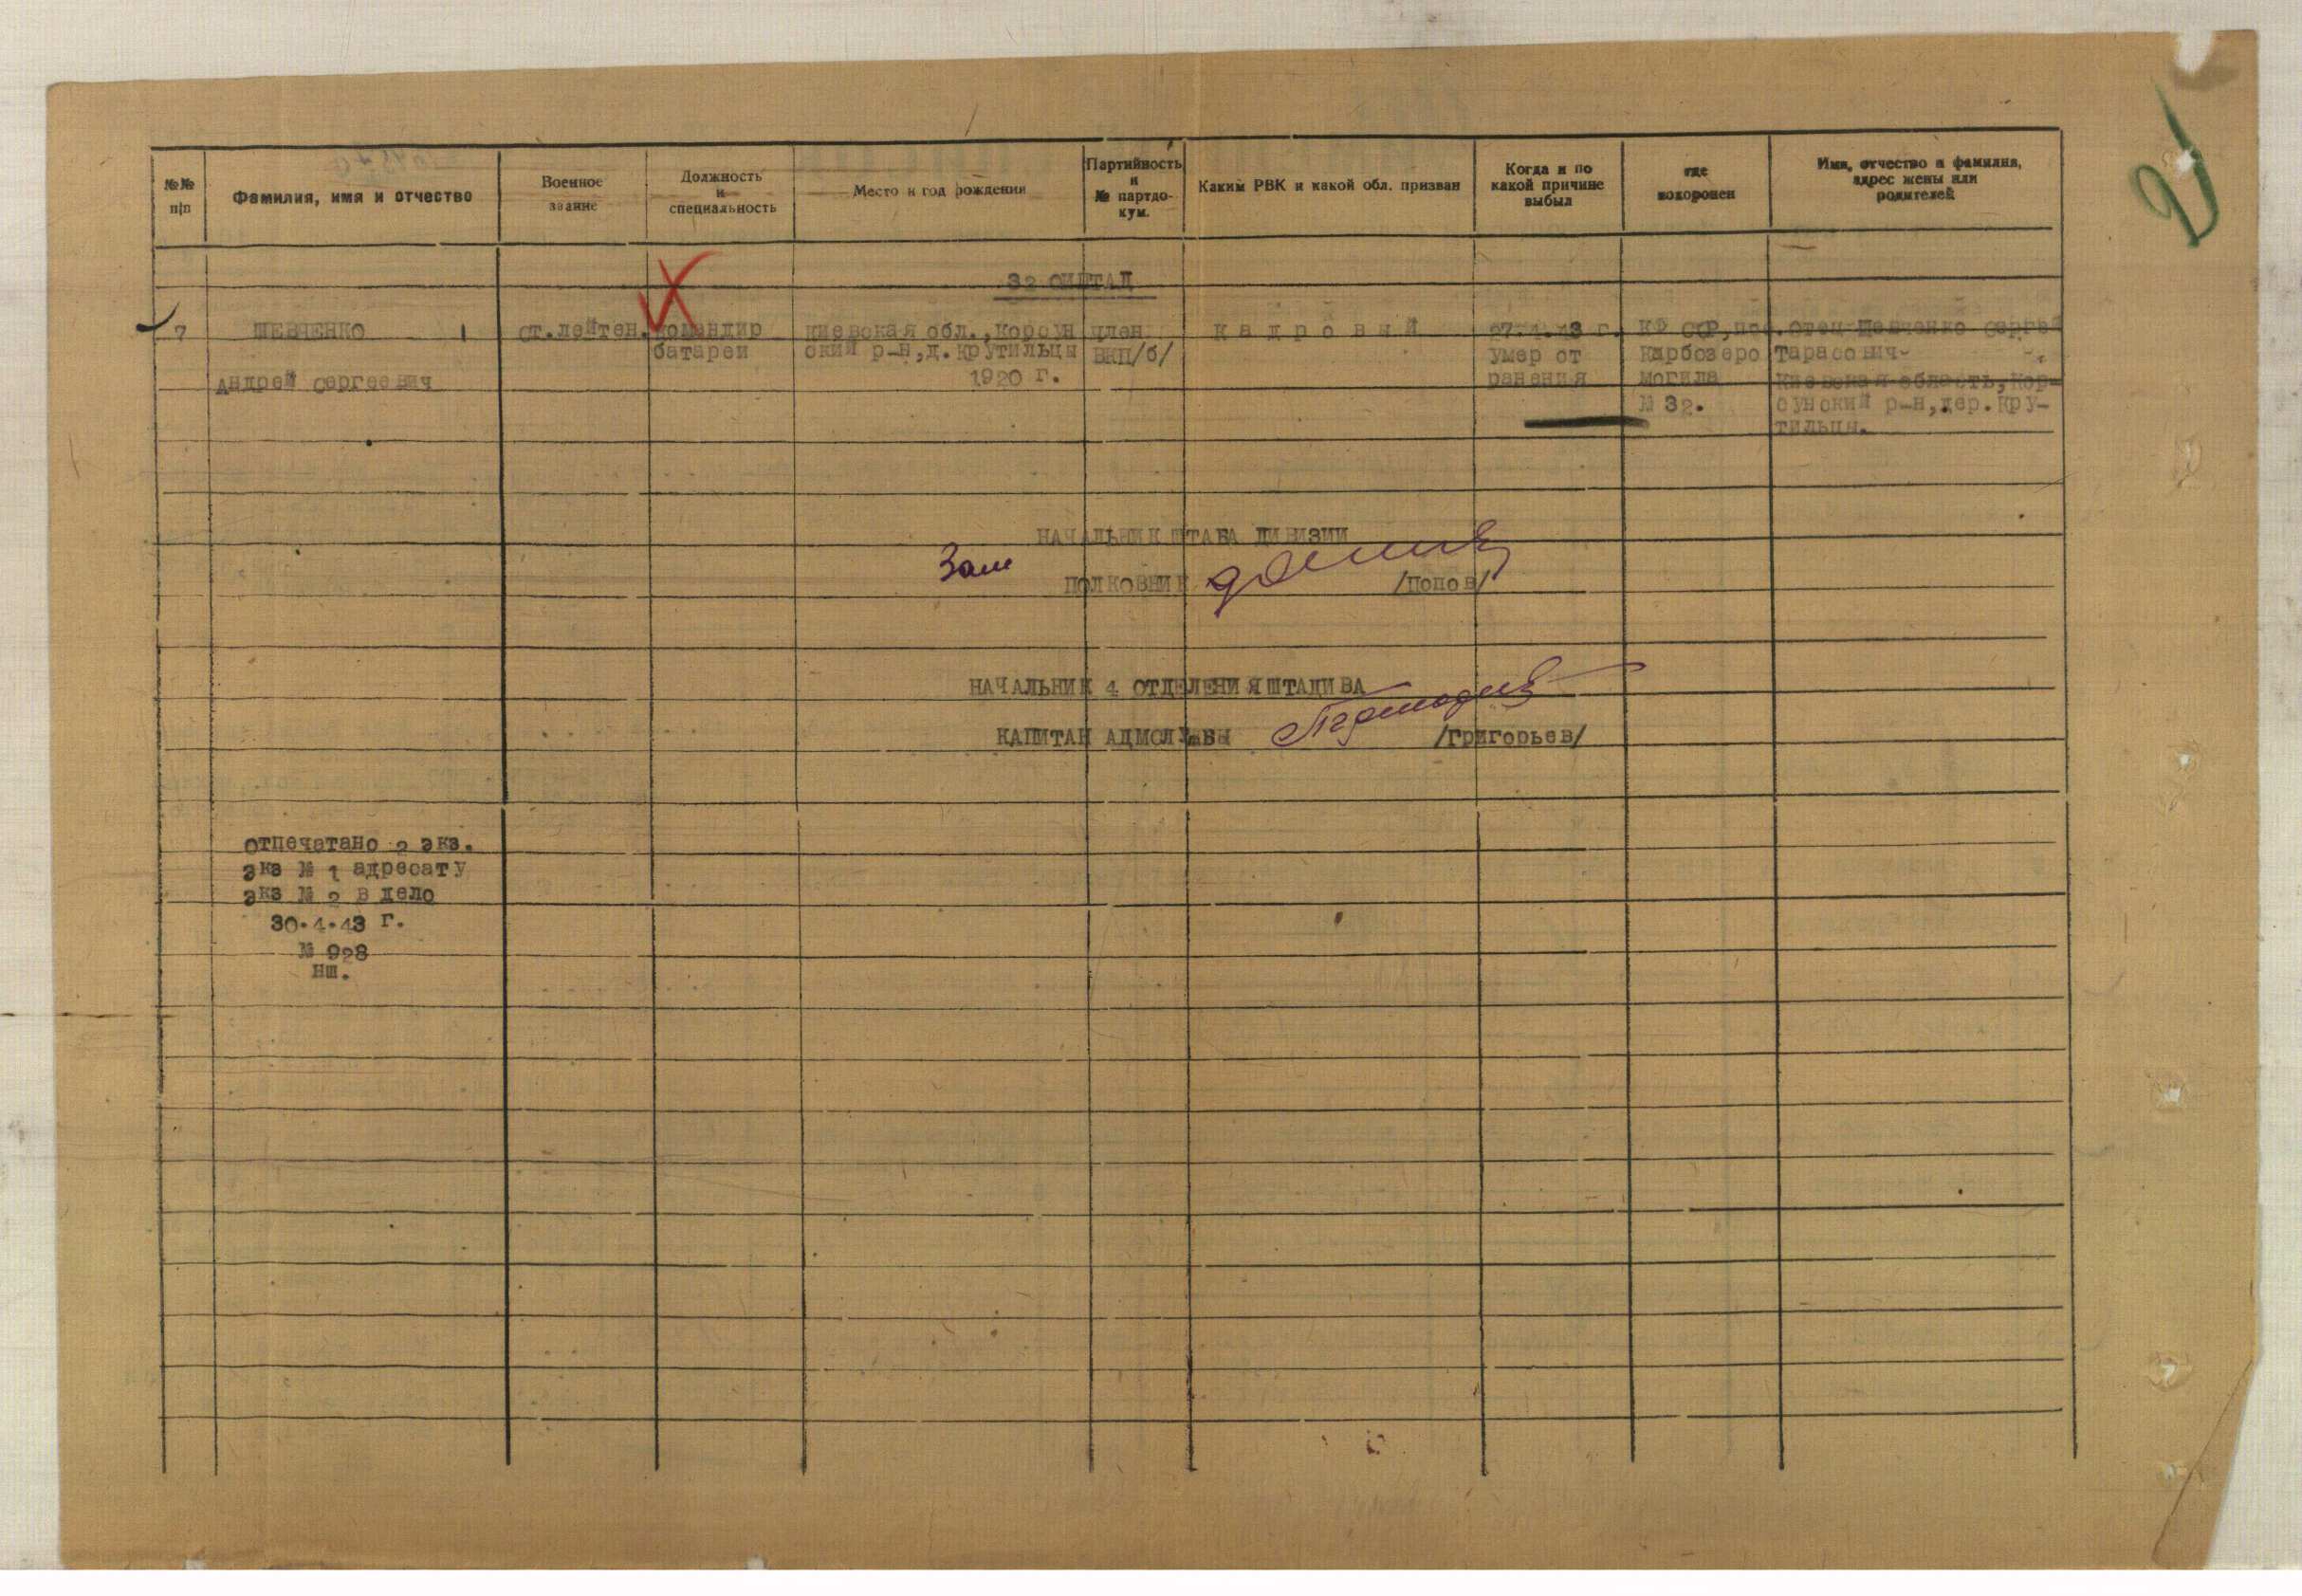 №№ п|п
Фамилия, имя и отчество
Военное звание
Должность и специальность
Место и год рождения
Партийность и № партдокум.
Каким РВК и какой обл. призван
Когда и по какой причине выбыл
где похоронен
Имя, отчество и фамилия, адрес жены или родителей
7
ШЕВЧЕНКО 1
Андрей Сергеевич
ст.лейтен.
командир
батареи
Киевская обл., Корсун
ский р-н,д.Крутильцы
1920 г.
член
ВКП/б/
к а д р о в ы й
27.4.43 г.
умер от
ранения
КФ ССР,
Карбозеро
могила
№ 32.
отец Шевченко Сергей
Тарасович-
Киевская область,Кор-
сунский р-н,дер.Кру-
тильцы.
НАЧАЛЬНИК ШТАБА ДИВИЗИИ
Зам
ПОЛКОВНИК /Попов/
НАЧАЛЬНИК 4 ОТДЕЛЕНИЯ ШТАДИВА
КАПИТАН АДМСЛУЖБЫ /Григорьев/
отпечатано 2 экз.
экз № 1 адресату
экз № 2 в дело
30.4.43 г.
№ 928
нш.
21